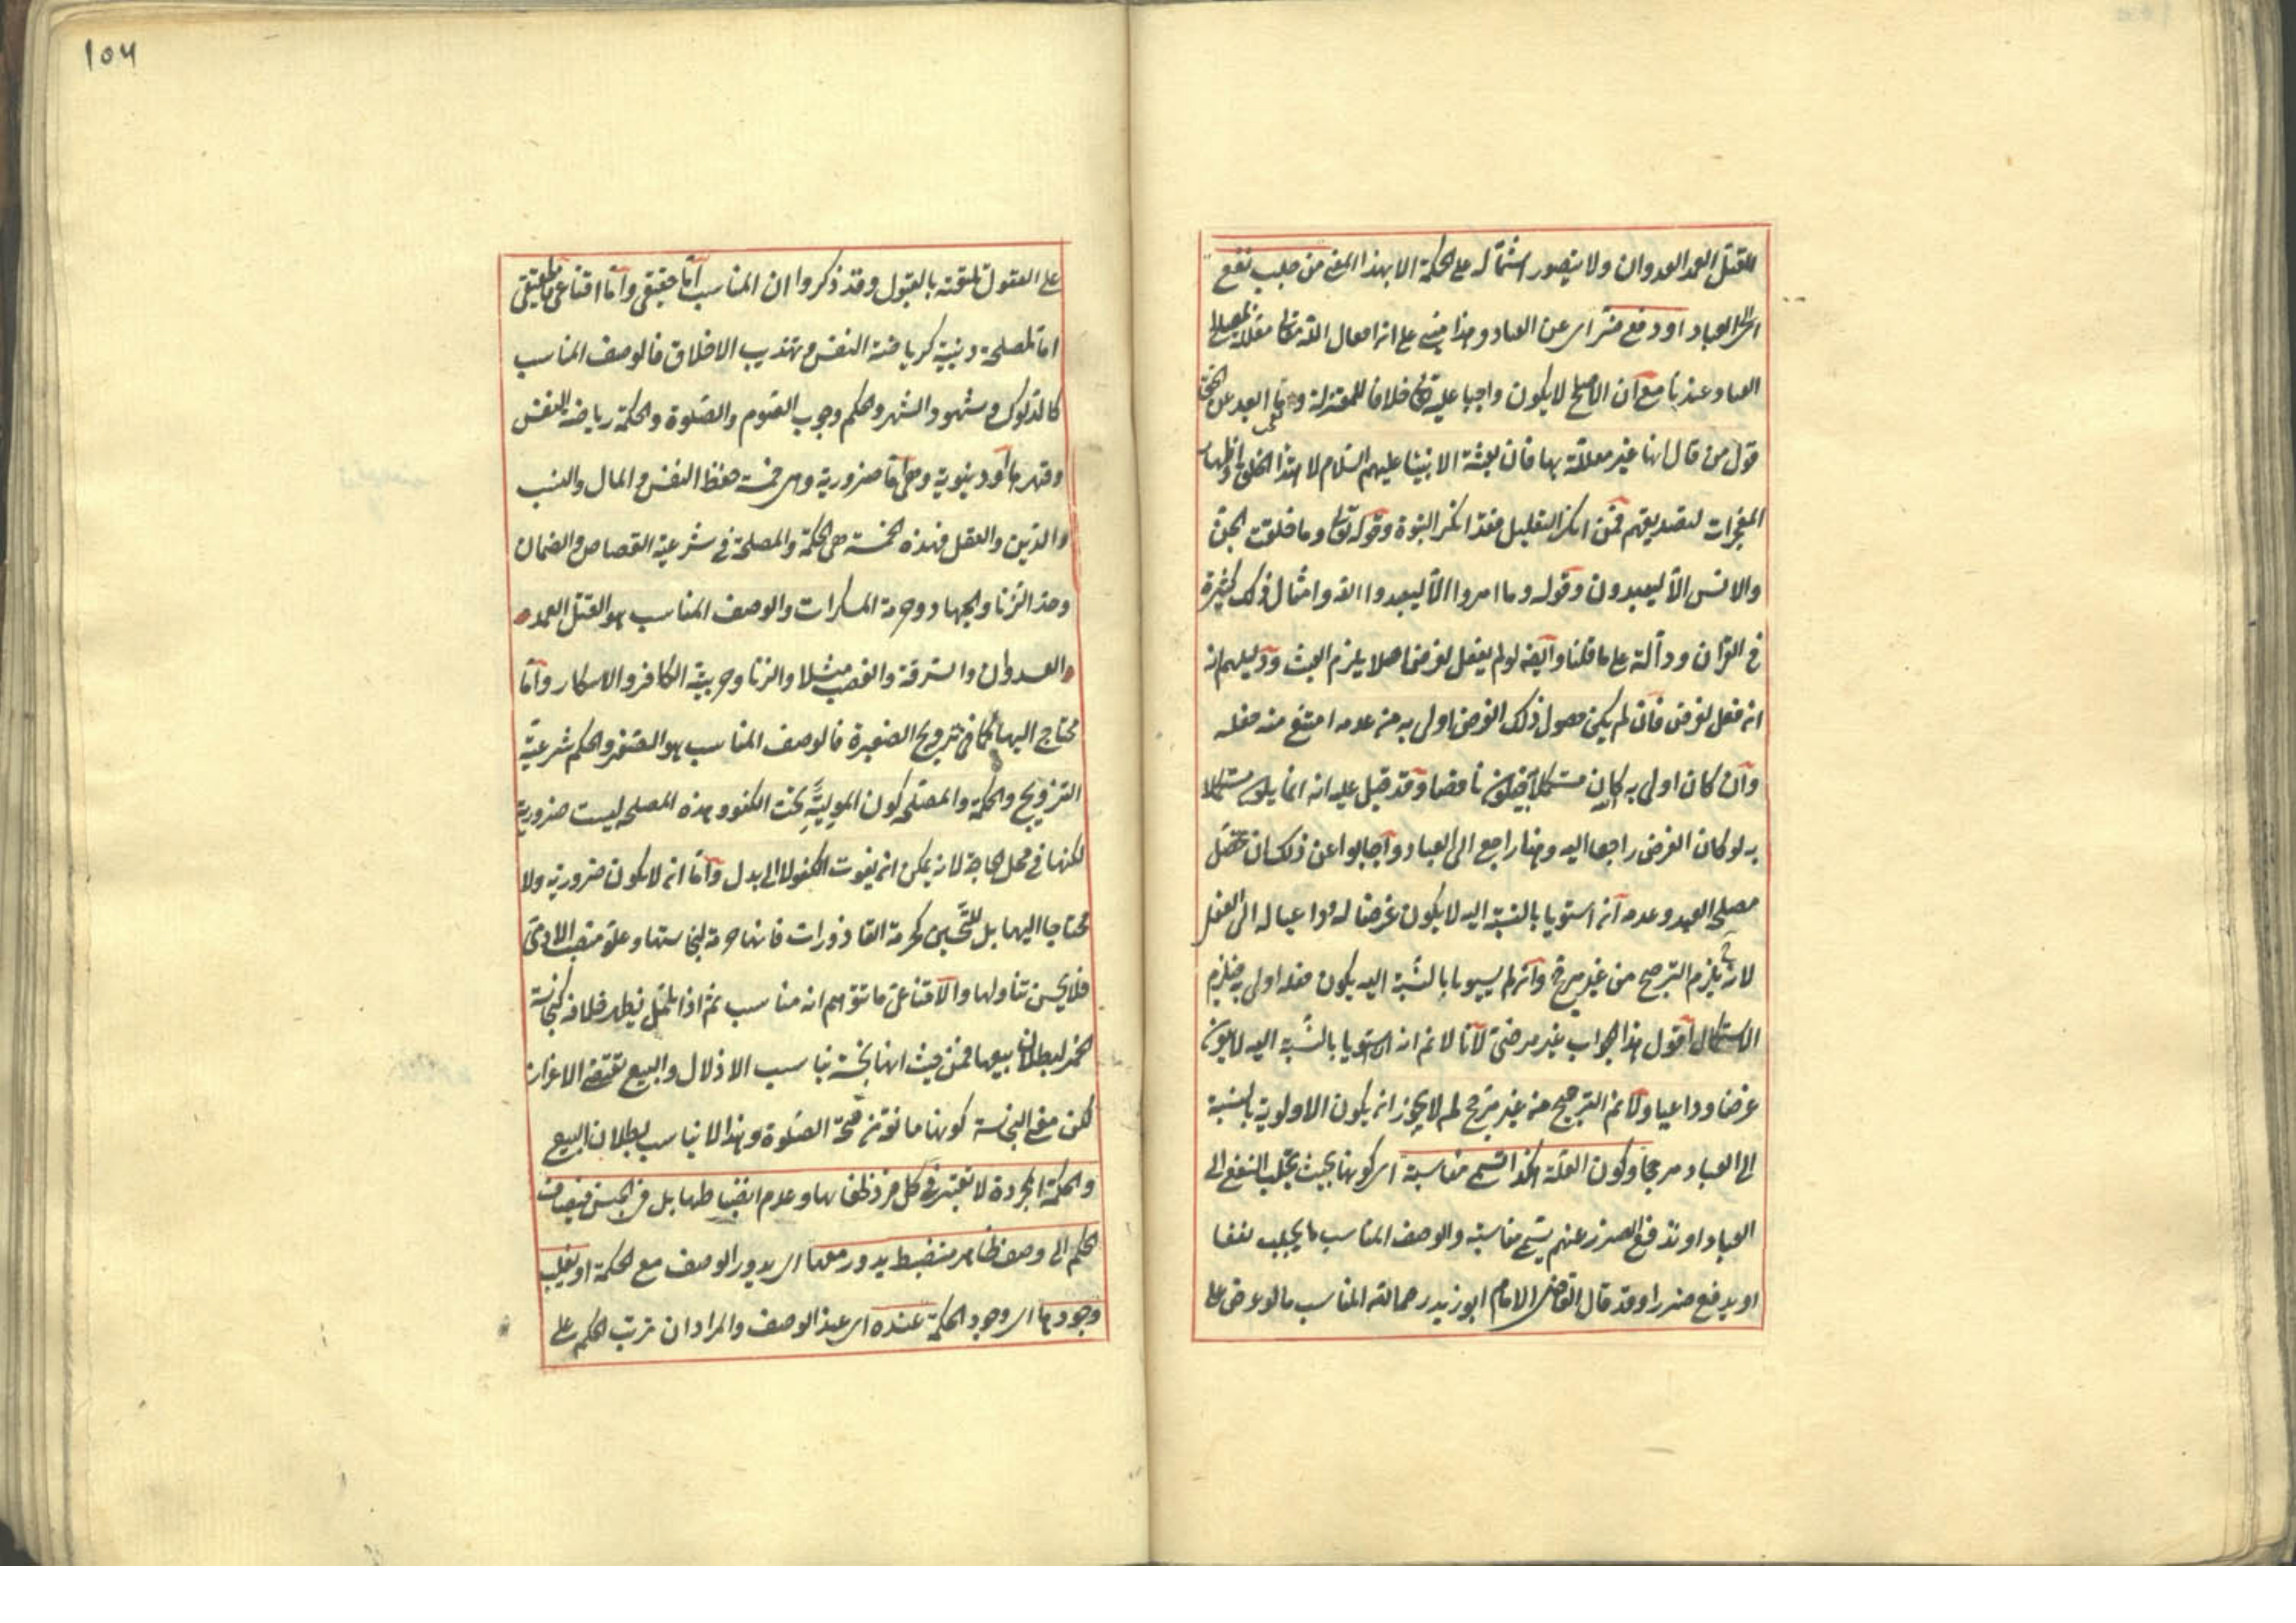 للقتل العمد العدوان ولا يتصور اشتماله على الحكمة الا بهذا المعنى من جلب نفع
الى العباد او دفع ضر اى عن العباد وهذا مبنى على ان افعال الله تعالى معللة بمصالح
العباد عندنا مع ان الاصلح لا يكون واجبا عليه تع خلافا للمعتزلة وما ابعد عن الحق
قول من قال انها غير معللة بها فان بعثة الانبياء عليهم السلام لاهتداء الخلق واظهار
المعجزات لتصديقهم فمن انكر التعليل فقد انكر النبوة وقوله تعالى وما خلقت الجن
والانس الا ليعبدون وقوله وما امروا الا ليعبدوا الله وامثال ذلك كثيرة
فى القرآن ودالة على ما قلنا وايضا لو لم يفعل لغرض اصلا يلزم العبث ودليلهم انه
ان فعل لغرض فان لم يكن حصول ذلك الغرض اولى به من عدمه امتنع منه فعله
وان كان اولى به كان مستكملا به فيكون ناقصا وقد قيل عليه انه انما يكون مستكملا
به لو كان الغرض راجعا اليه وهنا راجع الى العباد واجابوا عن ذلك ان تحصيل
مصلحة العبد وعدمه ان استويا بالنسبة اليه لا يكون غرضا له وداعيا له الى الفعل
لانه ح يلزم الترجيح من غير مرجح وان لم يستويا بالنسبة اليه يكون فعله اولى به فيلزم
الاستكمال اقول هذا الجواب غير مرضى لانا لا نم انه ان استويا بالنسبة اليه لا يكون
غرضا وداعيا ولا نم الترجيح من غير مرجح لم لا يجوز ان يكون الاولوية بالنسبة
الى العباد مرجحا وكون العلة هكذا تسمى مناسبة اى كونها بحيث تجلب النفع الى
العباد او تدفع الضرر عنهم يسمى مناسبة والوصف المناسب ما يجلب نفعا
او يدفع ضررا وقد قال القاضى الامام ابو زيد رحمه الله المناسب ما لو عرض على
١٥٦
على العقول تلقته بالقبول وقد ذكروا ان المناسب اما حقيقى واما اقناعى فالحقيقى
اما لمصلحة دينية كرياضة النفس وتهذيب الاخلاق فالوصف المناسب
كالدلوك وشهود الشهر والحكم وجوب الصوم والصلوة والحكمة رياضة النفس
وقهرها او دنيوية وهى اما ضرورية وهى خمسة حفظ النفس والمال والنسب
والدين والعقل فهذه الخمسة هى الحكمة والمصلحة فى شرعية القصاص والضمان
وحد الزنا والجهاد وحرمة المسكرات والوصف المناسب هو القتل العمد
العدوان والسرقة والغصب مثلا والزنا وحربية الكافر والاسكار واما
محتاج اليها كما فى تزويج الصغيرة فالوصف المناسب هو الصغر والحكم شرعية
التزويج والحكمة والمصلحة كون المولية تحت الكفو وهذه المصلحة ليست ضرورية
لكنها فى محل الحاجة لانه يمكن ان يفوت الكفو لا الى بدل واما ان لا يكون ضرورية ولا
محتاجا اليها بل للتحسين كحرمة القاذورات فانها حرمة لنجاستها وعلو منصب الادمى
فلا يحسن تناولها والاقناعى ما يتوهم انه مناسب ثم اذا تأمل يظهر خلافه كنجاسة
الخمر لبطلان بيعها فمن حيث انها نجسة يناسب الاذلال والبيع يقتضى الاعزاز
لكن معنى النجاسة كونها مانعة من صحة الصلوة وهذا لا يناسب بطلان البيع
والحكمة المجردة لا تعتبر فى كل فرد لخفائها وعدم انضباطها بل فى الجنس فيضاف
الحكم الى وصف ظاهر منضبط يدور معها اى يدور الوصف مع الحكمة او يغلب
وجودها اى وجود الحكمة عنده اى عند الوصف والمراد ان ترتب الحكم على